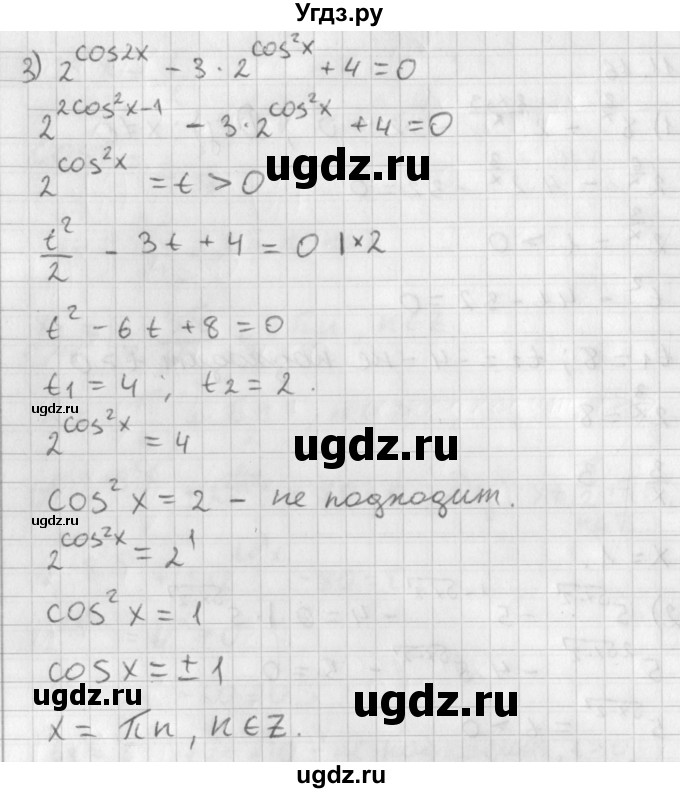 Угдз.ру
3) 2^{cos2x} - 3 · 2^{cos²x} + 4 = 0
2^{2cos²x-1} - 3 · 2^{cos²x} + 4 = 0
ugdz.ru
2^{cos²x} = t > 0
t²/2 - 3t + 4 = 0 | × 2
t² - 6t + 8 = 0
t1 = 4 ; t2 = 2 .
ugdz.ru
2^{cos²x} = 4
ugdz.ru
cos²x = 2 - не подходит.
ugdz.ru
2^{cos²x} = 2^1
cos²x = 1
cosx = ± 1
ugdz.ru
ugdz.ru
x = πn , n ∈ Z .
ugdz.ru